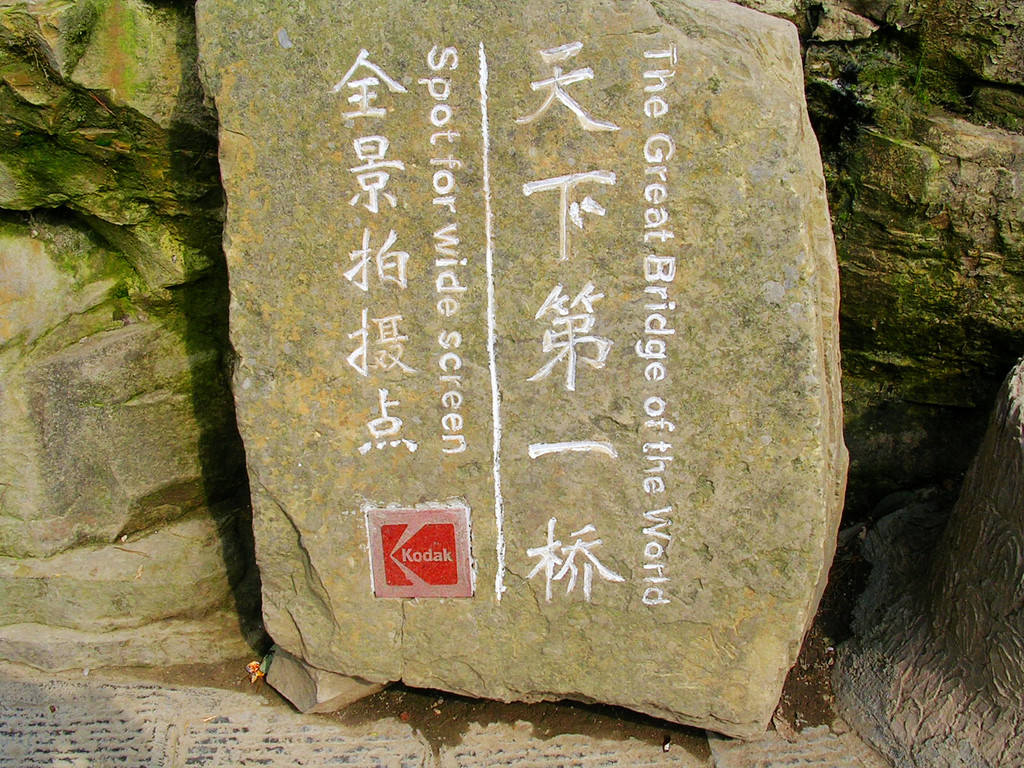 The Great Bridge of the World
天下第一桥
Spot for wide screen
全景拍摄点
Kodak